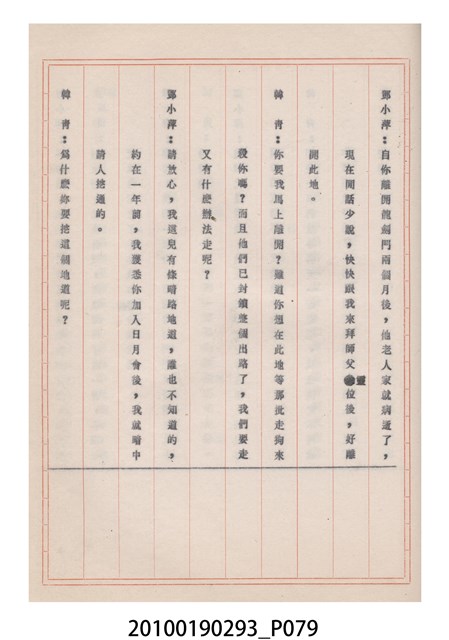 鄧小萍：自你離開龍劍門兩個月後，他老人家就病逝了，
現在閒話少說，快快跟我來拜師父靈位後，好離
開此地。
韓　青：你要我馬上離開？難道你想在此地等那批走狗來
殺你嗎？而且他們已封鎖整個出路了，我們要走
又有什麼辦法走呢？
鄧小萍：請放心，我這兒有條暗路地道，誰也不知道的，
約在一年前，我獲悉你加入日月會後，我就暗中
請人挖通的。
韓　青：為什麼妳要挖這個地道呢？
20100190293_P079